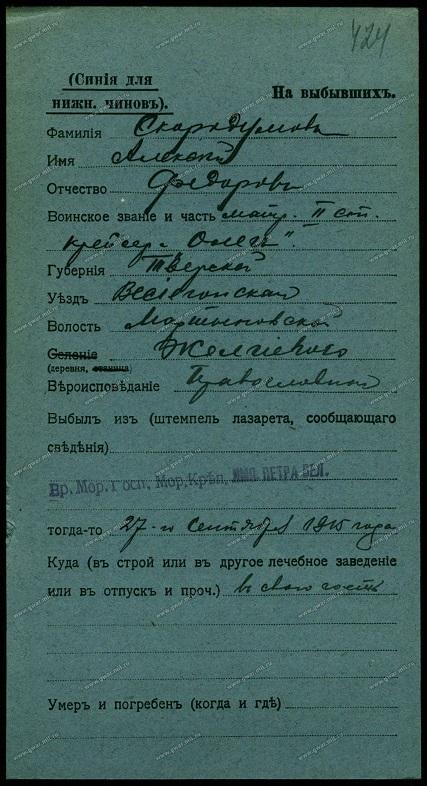 424
(Синія для
нижн. чиновъ).
На выбывшихъ.
Фамилія Скородумовъ
Имя Алексѣй
Отчество Федоровъ
Воинское званіе и часть матр. II ст.
крейсер. „Олегъ".
Губернія Тверской
Уѣздъ Весіегонской
Волость Мартыновской
Селеніе
(деревня, станица)
Вѣроисповѣданіе Православной
Выбылъ изъ (штемпель лазарета, сообщающаго
свѣдѣнія)
Вр. Мор. Госп. Мор. Крѣп. ИМП. ПЕТРА ВЕЛ.
тогда-то 27-го Сентября 1915 года
Куда (въ строй или въ другое лечебное заведеніе
или въ отпускъ и проч.) въ свою часть
Умеръ и погребенъ (когда и гдѣ)
www.gwar.mil.ru